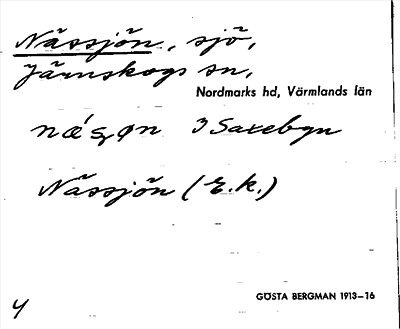 Nässjön, sjö,
Järnskogs sn,
Nordmarks hd, Värmlands län
3 Saxebyn
Nässjön (E.k.)
GÖSTA BERGMAN 1913—16